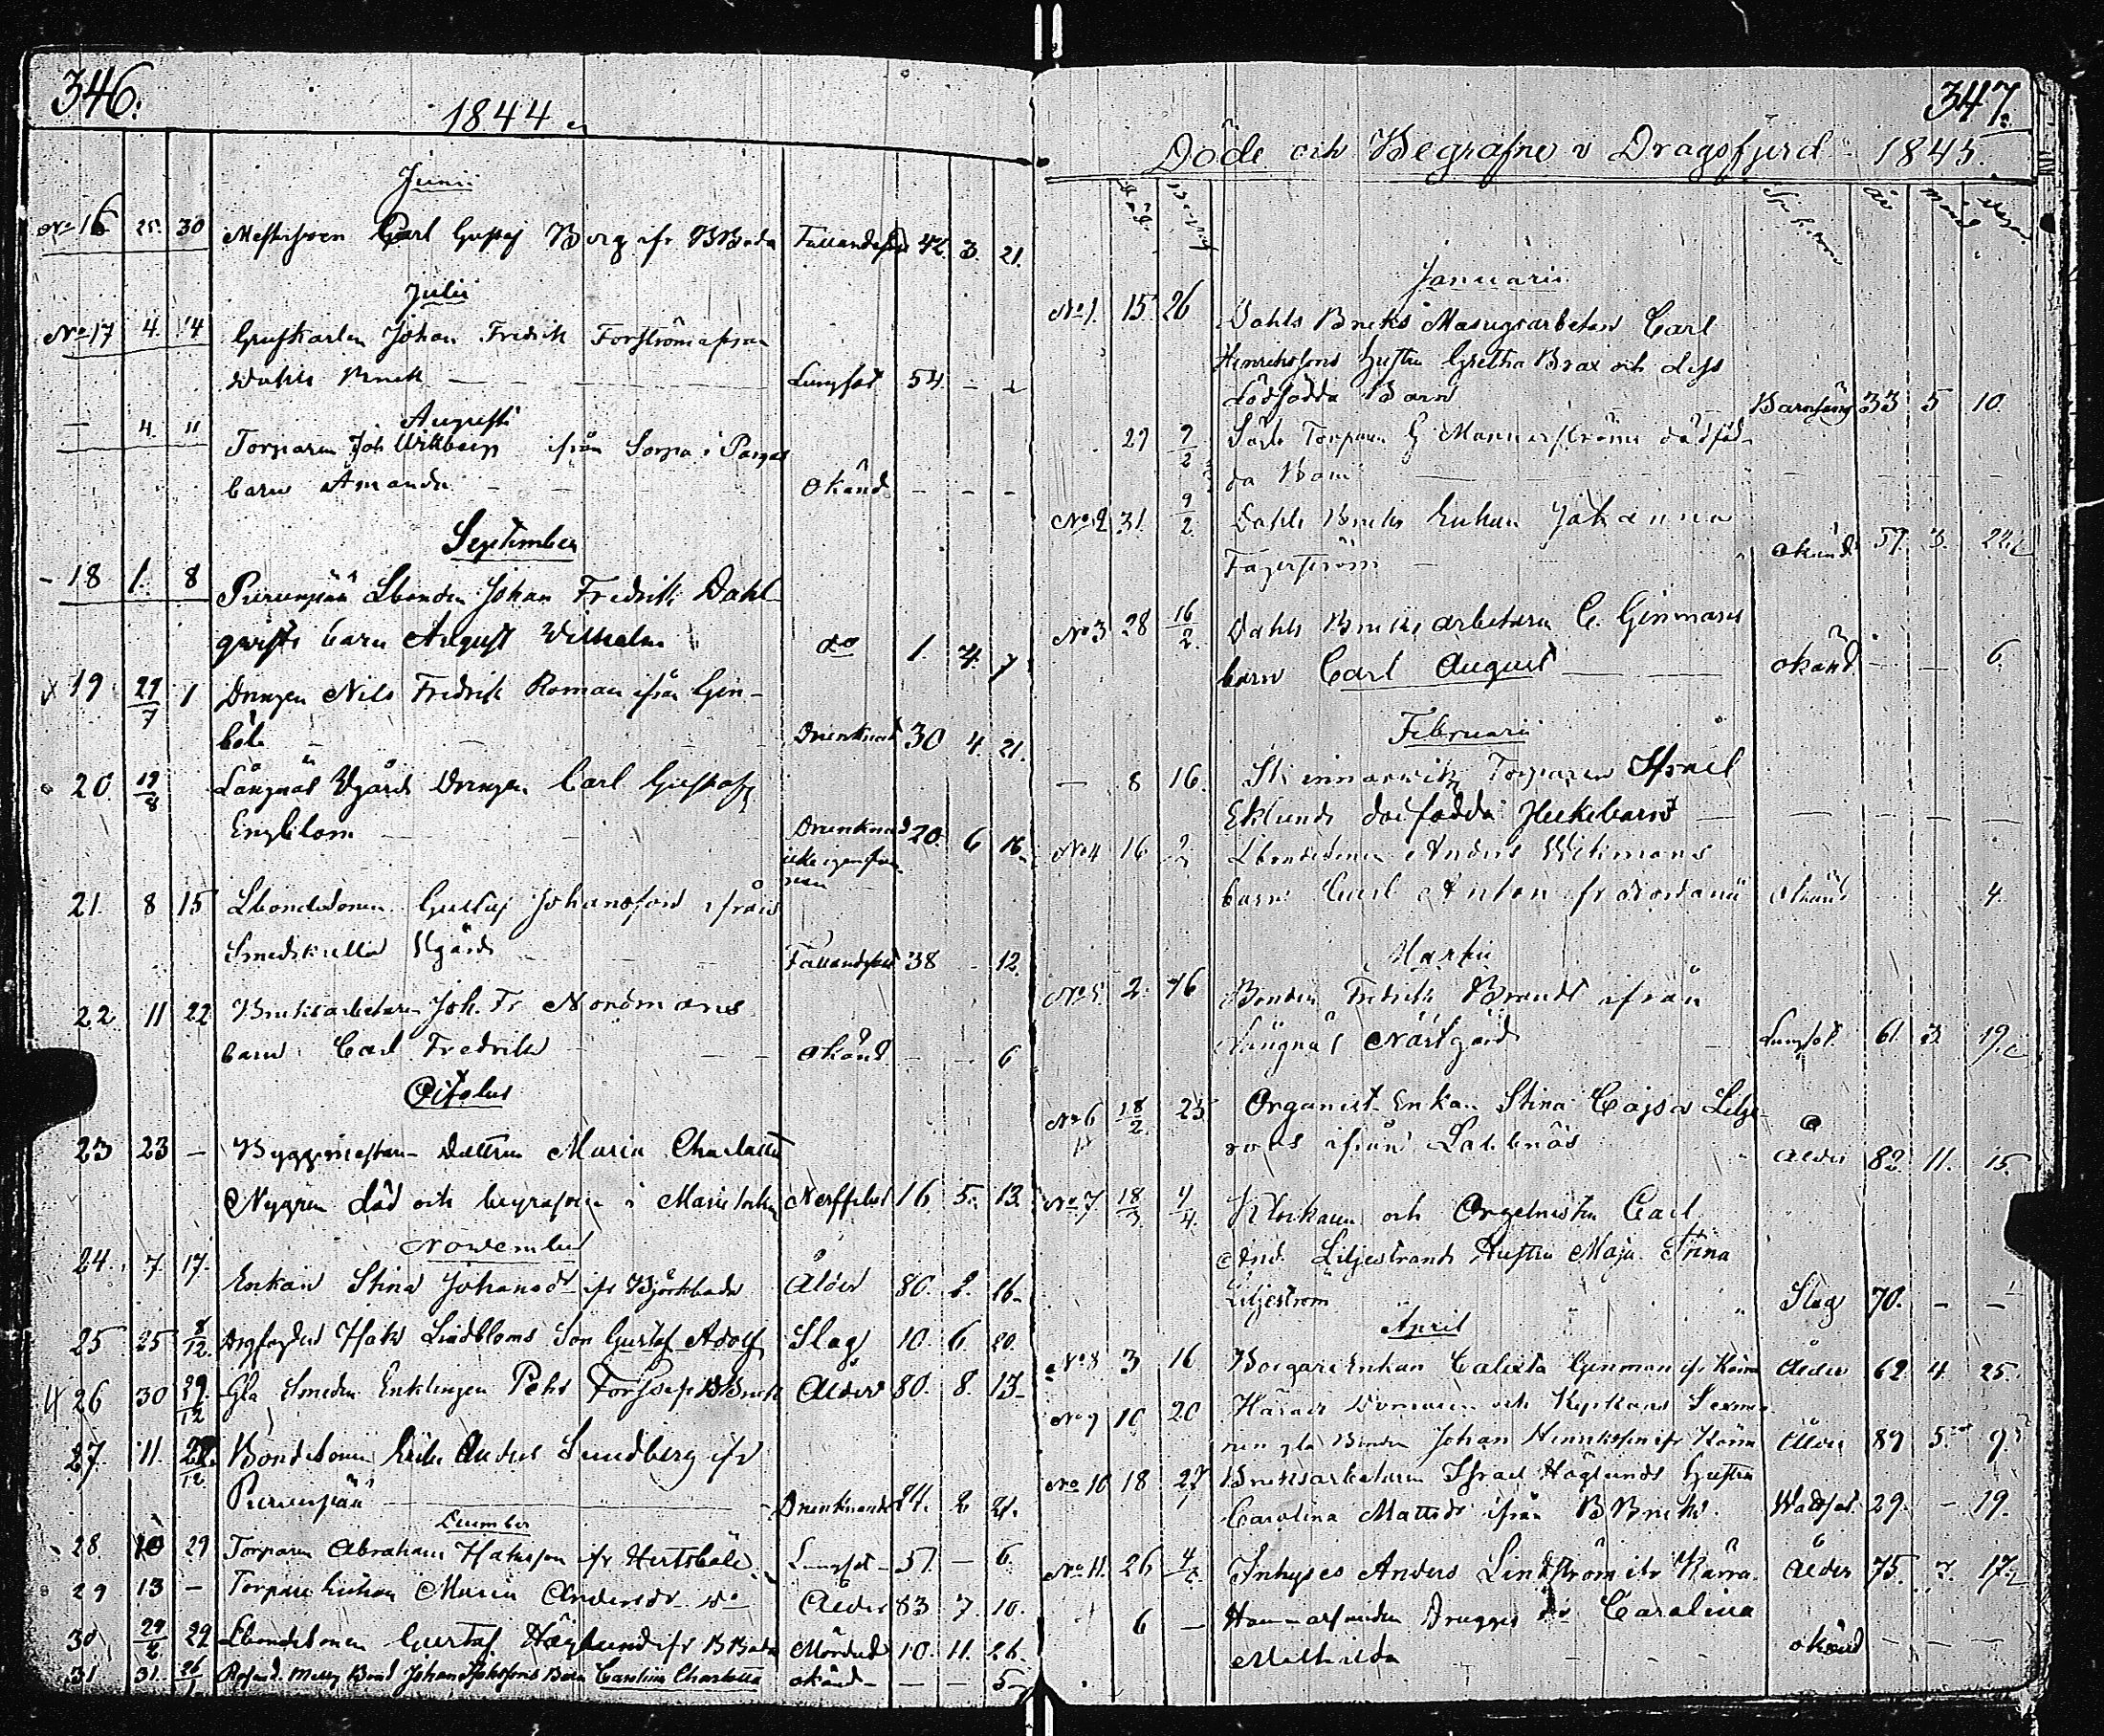 346.
1844
Junii
No 16 25. 30 Carl Gustaf Borg ifr BBoda Fallandesot 42. 3. 21.
Julii
No 17 4. 14 Grufkarlen Johan Fredrik Forström ifrån
Dahls Bruk — Lungsot 54. — —
Augusti
— 4. 11 Torparen Joh Wikberg ifrån Sorpo i Pargas
barn Amanda — — Okänd — — —
September
- 18 1. 8 Purunpää Lbonden Johan Fredrik Dahl
qvists barn August Wilhelm do 1. 4. 7
19 29/7 1 Drengen Nils Fredrik Roman ifrån Gen-
böle — Drunknat 30 4. 21.
20. 19/8 Långnäs Wgård Drengen Carl Gustafs
Engblom — Drunknad 20. 6 16.
icke igenfun-
nen
21. 8 15 Lbondesonen Gustaf Johansson ifrån
Smedskulla Wgård — Fallandesot 38 - 12.
22 11 22 Bruksarbetaren Joh. Fr Nordmans
barn Carl Fredrik — okänd — — 6
October
23 23 — Byggmästare Dottren Maria Charlotta
Nygren död och begrafven i Mariæ Nerffeber 16. 5. 13.
November
24. 7. 17. Enkan Stina Johansdr ifr Björkboda Ålder 80. 2. 16.
25 25 8/12. Isaks Lindbloms Son Gustaf Adolf Slag 10. 6. 20.
26 30 29/12 Gla Smeden Enklingen Pehr Forss ifr BBruk Ålder 80. 8. 13.
27. 11. 22/12 Bondesonen Erik Anders Sundberg ifr
Purunpää — Drunknade 24. 2 21.
December
28. 10 29 Torparen Abraham Isaksson ifr Hertsböle Lungsot 51. — 6.
29 13 — Torpare Enkan Maria Andersdr do Ålder 83 7. 10.
30 24/2 29 Lbondesonen Gustaf Höglund ifr BBoda Mördad 10. 11. 26.
31 31. 26/1 Johan Jakobssons Barn Carolina Charlotta okänd — — 5
347.
Döde och Begrafne i Dragsfjerd 1845.
år
Januarii
No 1. 15. 26 Dahls Bruks Masugnsarbetaren Carl
Henrikssons hustru Gretha Brax och dess
dödfödda Barn Barnsäng 33 5 10.
29 9/2 Torparen G Mannerströms dödföd-
da Barn — — — —
No 2 31. 9/2. Dahls Bruks Enkan Johanna
Fagerström — okänd 57. 3. 22.
No 3 28 16/2. Dahls Bruks arbetaren C. Genmans
barn Carl August — okänd — — 6.
Februarii
— 8 16. Torparen Israel
Eklunds dödfödda flickebarn — — — —
No 4 16 Lbondesonen Anders Wikmans
barn Carl Anton ifr okänd 4.
Martii
No 5. 2. 16 Bonden Fredrik Brandt ifrån
Långnäs Nästgård — Lungsot 61. 3. 19.
No 6 18/2. 23 Organist Enkan Stina Cajsa Lilje-
roos ifrån Labbnäs Ålder 82. 11. 15.
No 7. 18/3 4/4. Klockaren och Orgelnisten Carl
And. Liljestrands Hustru Maja Stina
Liljeström Slag 70. — —
April
No 8 3 16 Borgare Enkan Calixta Genman ifr Kärra Ålder 62. 4. 25.
No 9 10 20 Härads Domaren och Kyrkans Sexman-
nen gla Bonden Johan Henriksson ifr Kärra Ålder 89 5. 9.
No 10 18 27 Bruksarbetaren Israel Höglunds hustru
Carolina Mattsdr ifrån BBruk. Wattsot 29. - 19.
No 11. 26 4/5 Inhyses Anders Lindström ifr Kärra. Ålder 75. 3. 17.
6 — Carolina
Mathilda — okänd — — —